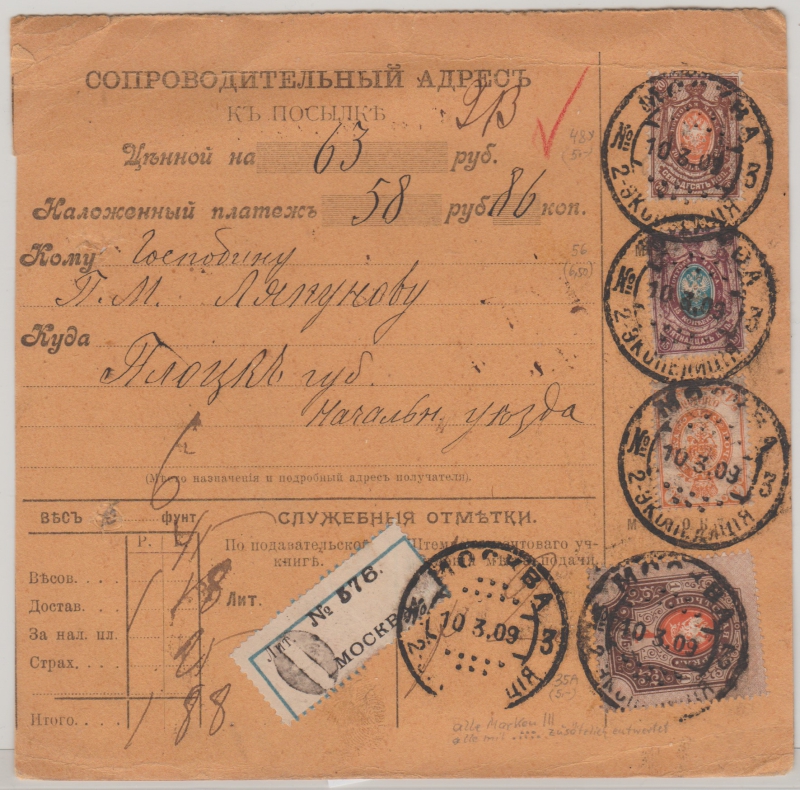 СОПРОВОДИТЕЛЬНЫЙ АДРЕСЪ
КЪ ПОСЫЛКѢ
Цѣнной на 63 руб.
Наложенный платежъ 58 руб. 86 коп.
Кому Господину
П. М. Ляпунову
Куда
Плоцкъ губ.
Начальн. уѣзда
(Мѣсто назначенія и подробный адресъ получателя).
ВѢСЪ фунт.
Р. К.
Вѣсов.
Достав.
За нал. пл.
Страх.
Итого. 1 88.
СЛУЖЕБНЫЯ ОТМѢТКИ.
По подавательской книгѣ.
Лит.
Лит. № 576.
МОСКВА
МОСКВА 10 3.09 3
№ МОСКВА 3
10 3.09
2-ЭКСПЕДИЦІЯ
№ МОСКВА 3
10 3.09
2-ЭКСПЕДИЦІЯ
№ МОСКВА 3
10 3.09
2-ЭКСПЕДИЦІЯ
№ МОСКВА 3
10 3.09
35A
(5,-)
56
(6,50)
alle Marken III
alle mit ..... zusätzlich entwertet